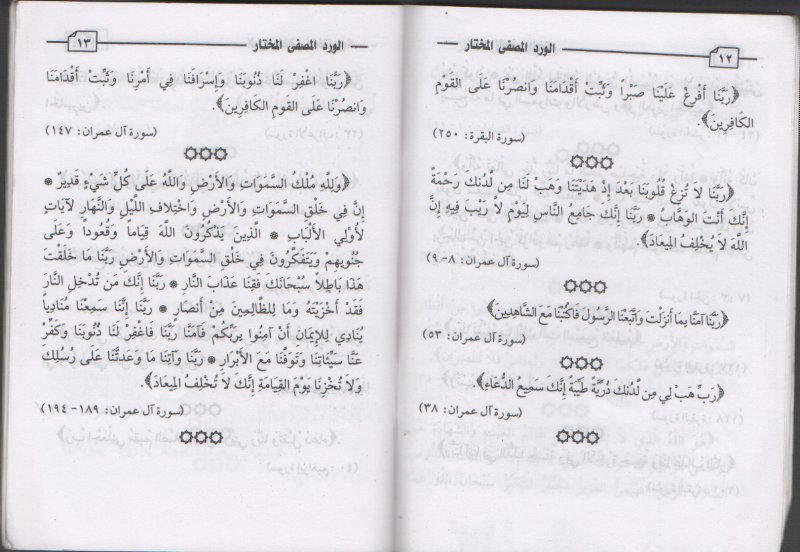 ١٢
الورد المصفى المختار
﴿رَبَّنَا أَفْرِغْ عَلَيْنَا صَبْراً وَثَبِّتْ أَقْدَامَنَا وَانصُرْنَا عَلَى القَوْمِ
الكَافِرِينَ﴾.
(سورة البقرة: ٢٥٠)
﴿رَبَّنَا لاَ تُزِغْ قُلُوبَنَا بَعْدَ إِذْ هَدَيْتَنَا وَهَبْ لَنَا مِن لَّدُنكَ رَحْمَةً
إِنَّكَ أَنْتَ الوَهَّابُ * رَبَّنَا إِنَّكَ جَامِعُ النَّاسِ لِيَوْمٍ لاَّ رَيْبَ فِيهِ إِنَّ
اللَّهَ لاَ يُخْلِفُ المِيعَادَ﴾.
(سورة آل عمران: ٨-٩)
﴿رَبَّنَا آمَنَّا بِمَا أَنزَلْتَ وَاتَّبَعْنَا الرَّسُولَ فَاكْتُبْنَا مَعَ الشَّاهِدِينَ﴾
(سورة آل عمران: ٥٣)
﴿رَبِّ هَبْ لِي مِن لَّدُنكَ ذُرِّيَّةً طَيِّبَةً إِنَّكَ سَمِيعُ الدُّعَاءِ﴾.
(سورة آل عمران: ٣٨)
الورد المصفى المختار
١٣
﴿رَبَّنَا اغْفِرْ لَنَا ذُنُوبَنَا وَإِسْرَافَنَا فِي أَمْرِنَا وَثَبِّتْ أَقْدَامَنَا
وَانصُرْنَا عَلَى القَومِ الكَافِرِينَ﴾.
(سورة آل عمران: ١٤٧)
﴿وَلِلَّهِ مُلْكُ السَّمَوَاتِ وَالأَرْضِ وَاللَّهُ عَلَى كُلِّ شَيْءٍ قَدِيرٌ *
إِنَّ فِي خَلْقِ السَّمَوَاتِ وَالأَرْضِ وَاخْتِلافِ اللَّيْلِ وَالنَّهَارِ لآيَاتٍ
لأُوْلِي الأَلْبَابِ * الَّذِينَ يَذْكُرُونَ اللَّهَ قِيَاماً وَقُعُوداً وَعَلَى
جُنُوبِهِمْ وَيَتَفَكَّرُونَ فِي خَلْقِ السَّمَوَاتِ وَالأَرْضِ رَبَّنَا مَا خَلَقْتَ
هَذَا بَاطِلاً سُبْحَانَكَ فَقِنَا عَذَابَ النَّارِ * رَبَّنَا إِنَّكَ مَن تُدْخِلِ النَّارَ
فَقَدْ أَخْزَيْتَهُ وَمَا لِلظَّالِمِينَ مِنْ أَنصَارٍ * رَبَّنَا إِنَّنَا سَمِعْنَا مُنَادِياً
يُنَادِي لِلإِيمَانِ أَنْ آمِنُوا بِرَبِّكُمْ فَآمَنَّا رَبَّنَا فَاغْفِرْ لَنَا ذُنُوبَنَا وَكَفِّرْ
عَنَّا سَيِّئَاتِنَا وَتَوَفَّنَا مَعَ الأَبْرَارِ * رَبَّنَا وَآتِنَا مَا وَعَدتَّنَا عَلَى رُسُلِكَ
وَلاَ تُخْزِنَا يَوْمَ القِيَامَةِ إِنَّكَ لاَ تُخْلِفُ المِيعَادَ﴾.
(سورة آل عمران: ١٨٩-١٩٤)